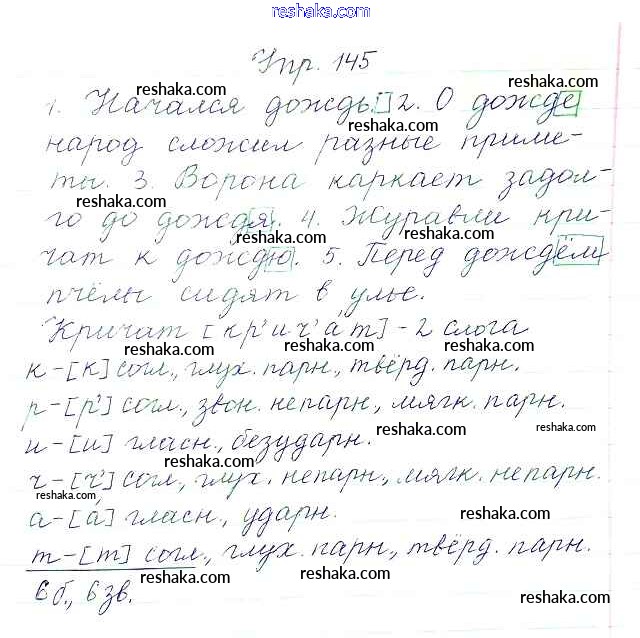 www.reshaka.com
Упр. 145
reshaka.com
reshaka.com
1. Начался дождь. 2. О дожде
reshaka.com
народ сложил разные приме-
ты. 3. Ворона каркает задол-
reshaka.com
го до дождя. 4. Журавли кри-
reshaka.com
чат к дождю. 5. Перед дождём
reshaka.com
пчёлы сидят в улье.
reshaka.com
Кричат [кр'ич'ат] - 2 слога
reshaka.com reshaka.com reshaka.com
к - [к] согл., глух. парн., твёрд. парн.
р - [р'] согл., звон. непарн., мягк. парн.
reshaka.com
и - [и] гласн., безударн.
reshaka.com
ч - [ч'] согл., глух. непарн., мягк. непарн.
reshaka.com
а - [а] гласн., ударн.
reshaka.com
т - [т] согл., глух. парн., твёрд. парн.
reshaka.com reshaka.com
6 б., 6 зв.
reshaka.com